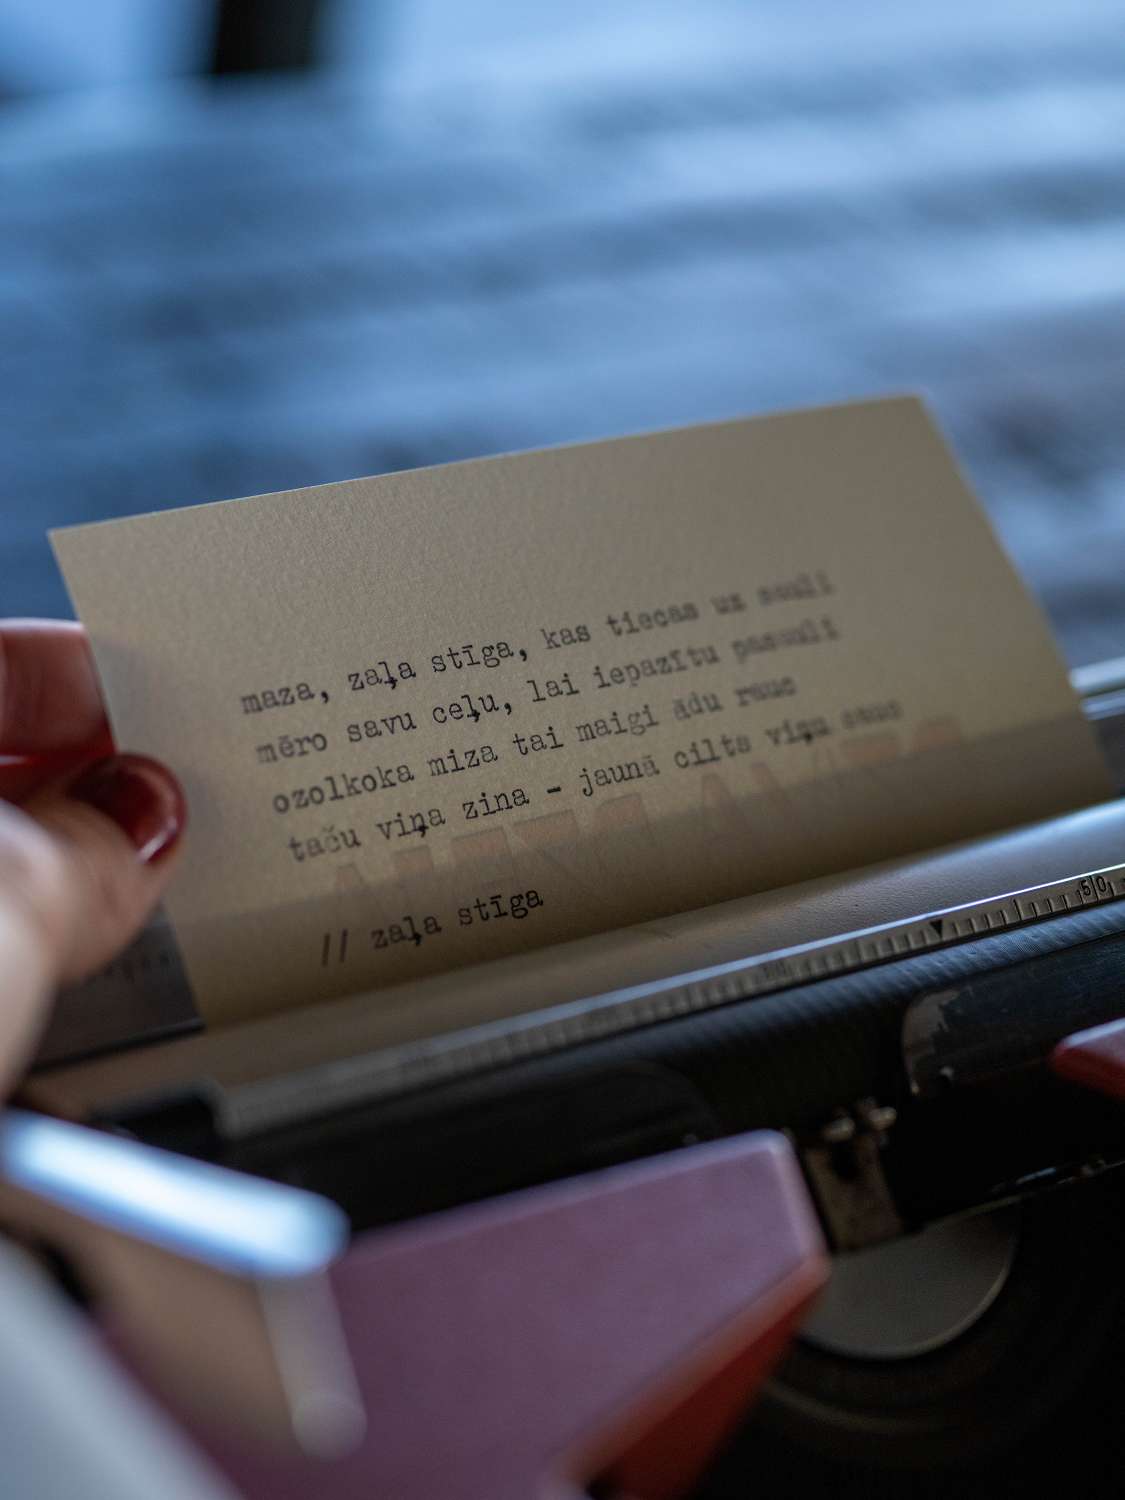 maza, zaļa stīga, kas tiecas uz sauli
mēro savu ceļu, lai iepazītu pasauli
ozolkoka miza tai maigi ādu rauc
taču viņa zina - jaunā cilts viņu sauc
// zaļa stīga
50